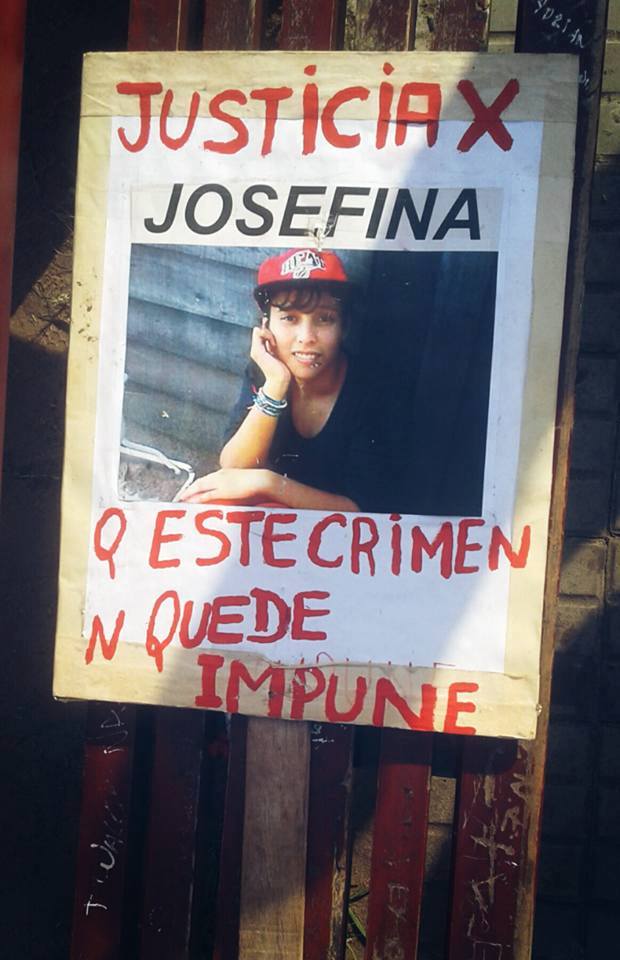 JUSTICIA X
JOSEFINA
Q ESTE CRIMEN
N QUEDE
IMPUNE